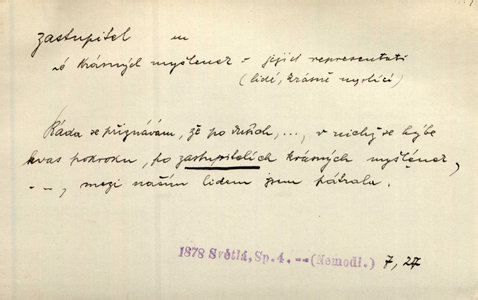 zastupitel m
-é krásných myšlenek = jejich representati
(lidé, krásně myslící)
Ráda se přiznávám, že po duších, ..., v nichž se hýbe
kvas pokroku, po zastupitelích krásných myšlenek,
- -, mezi naším lidem jsem pátrala.
1878 Světlá, Sp.4. --(Nemodl.) 7, 27